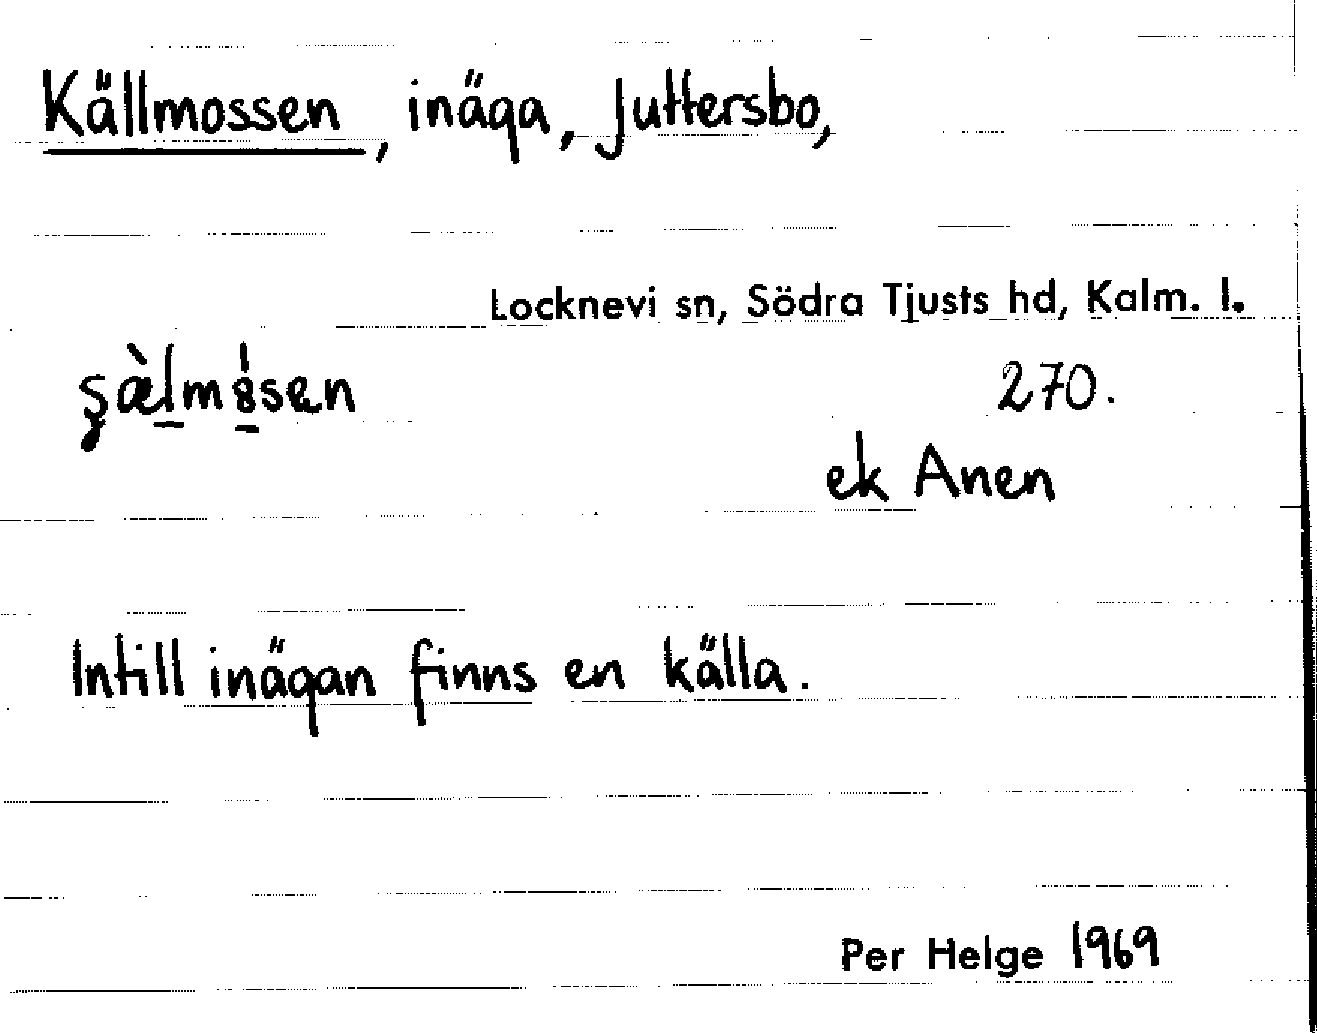 Källmossen, inäga, Juttersbo,
Locknevi sn, Södra Tjusts hd, Kalm. l.
270.
ek Anen
Intill inägan finns en källa.
Per Helge 1969